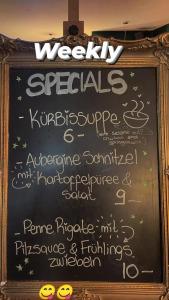 Weekly
SPECIALS
- Kürbissuppe
6-
- Aubergine Schnitzel
mit Kartoffelpüree &
Salat 9-
- Penne Rigate mit
Pilzsauce & Frühlings
zwiebeln 10-